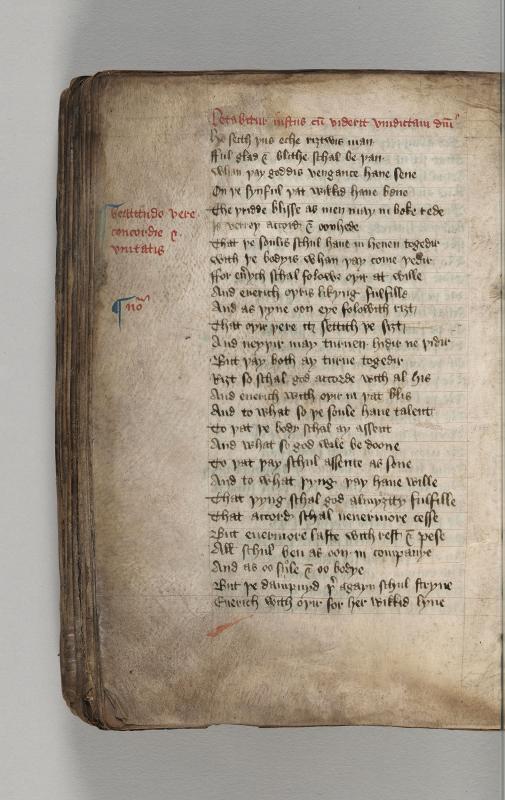 Letabitur iustus cū viderit vindictam dīn͛
He seith þus eche riȝtwis man
Ful glad & blithe schal be þan
Whan þay goddis vengance haue sene
On þe synful þat wikkid haue bene
beatitudo vere
concordie &
vnitatis
The þridde blisse as men may in boke rede
Is verrey acord & oonhede
That þe soulis schul haue in heuen togedir
With þe bodyis whan þay come þedir
For euych schal folowe oþir at wille
And euerich oþris likyng fulfille
nōͣ
And as þyne oon eye folowith riȝt
That oþir þere it settith þe siȝt
And neyþir may turnen hidir ne þidir
But þay both ay turne togedir
Riȝt so schal god accorde with al his
And euerich with oþir in þat blis
And to what so þe soule haue talent
To þat þe body schal ay assent
And what so god wile be doone
To þat þay schul assente as sone
And to what þyng þay haue wille
That þyng schal god almyȝty fulfille
That acord schal neuermore cesse
But euermore laste with rest & pese
All schul ben as oon in companye
And as oo soule & oo bodye
But þe dampnyd þ͛ agayn schul stryue
Euerich with oþir for her wikkid lyue